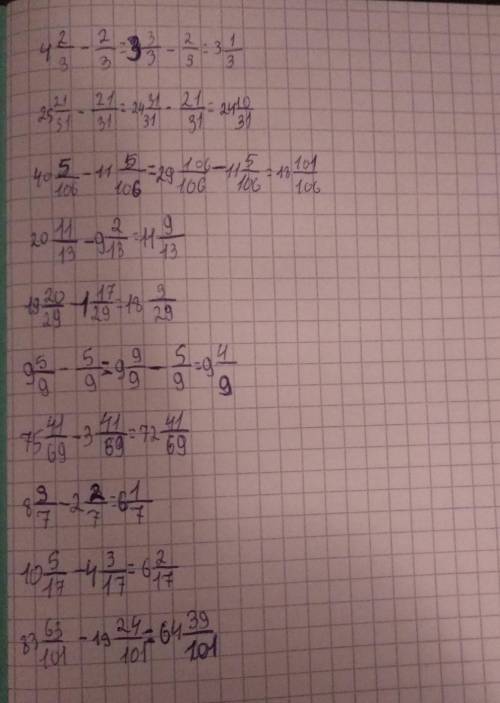 4 2/3 - 2/3 = 3 3/3 - 2/3 = 3 1/3
25 21/31 - 21/31 = 24 31/31 - 21/31 = 24 10/31
40 5/106 - 11 5/106 = 29 106/106 - 11 5/106 = 18 101/106
20 11/13 - 9 2/13 = 11 9/13
19 20/29 - 1 17/29 = 18 3/29
9 5/9 - 5/9 = 9 9/9 - 5/9 = 9 4/9
75 41/69 - 3 41/69 = 72 41/69
8 3/7 - 2 2/7 = 6 1/7
10 5/17 - 4 3/17 = 6 2/17
83 63/101 - 19 24/101 = 64 39/101